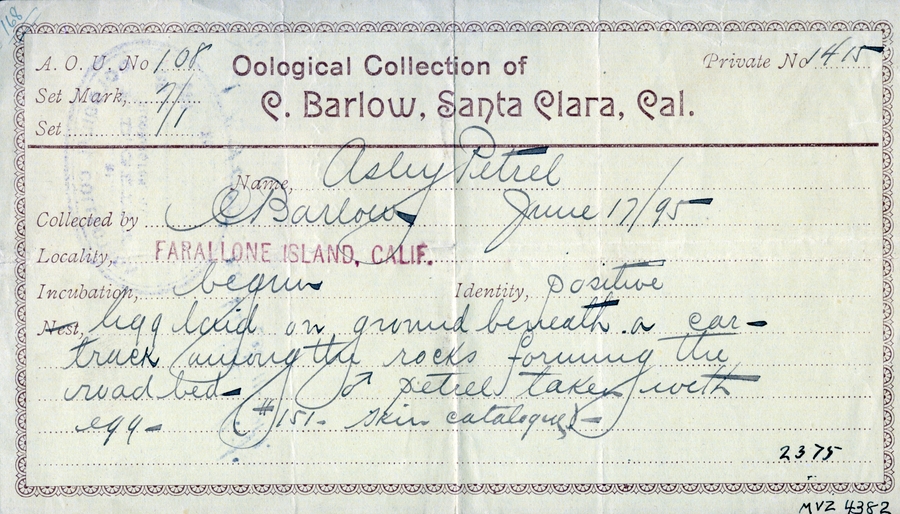 168
A. O. U. No 108
Oological Collection of
Private No 1415
Set Mark, 7/1
C. Barlow, Santa Clara, Cal.
Set
Name, Ashy Petrel
Collected by C Barlow June 17/95
Locality, FARALLONE ISLAND, CALIF.
Incubation, begun Identity, positive
Nest, Egg laid on ground beneath a car-
track (among the rocks forming the
road bed- ♂ petrel taken with
egg- (#151- skin catalogue)-
2375
MVZ 4382